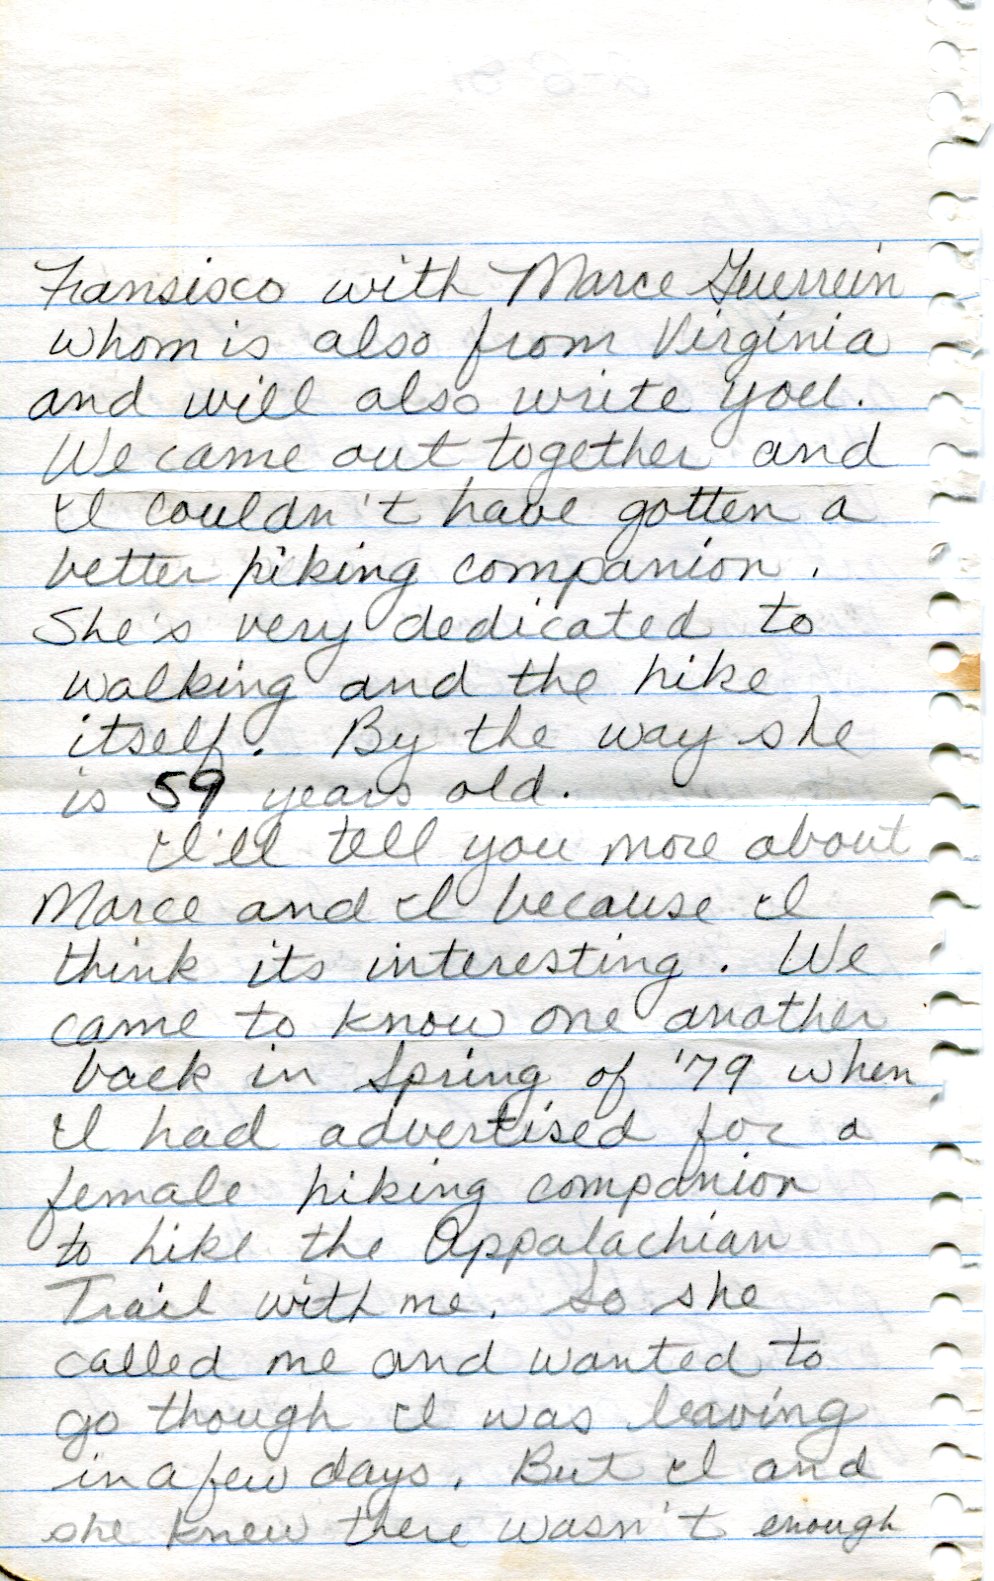 Fransisco with Marce Guerrein
whom is also from Virginia
and will also write you.
We came out together and
I couldn't have gotten a
better hiking companion.
She's very dedicated to
walking and the hike
itself. By the way she
is 59 years old.
I'll tell you more about
Marce and I because I
think its interesting. We
came to know one another
back in Spring of '79 when
I had advertised for a
female hiking companion
to hike the Appalachian
Trail with me. So she
called me and wanted to
go though I was leaving
in a few days. But I and
she knew there wasn't enough